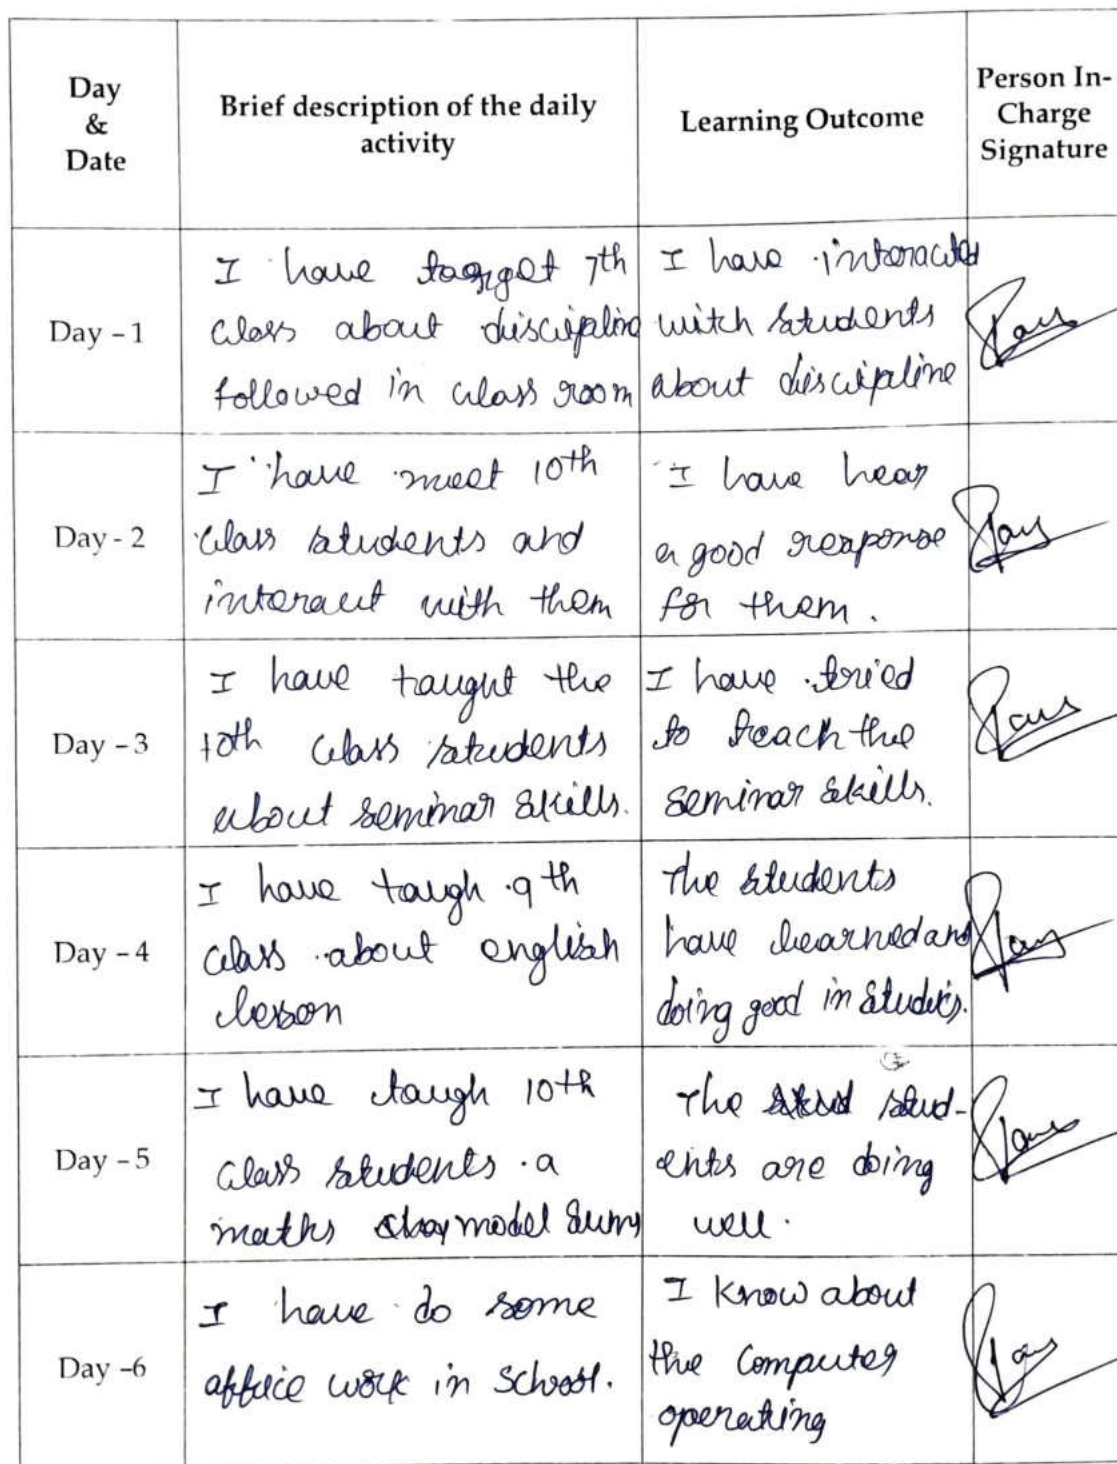 Day
&
Date
Brief description of the daily
activity
Learning Outcome
Person In-
Charge
Signature
Day - 1
I have 7th
class about discipline
followed in class room
I have interacted
witch students
about discipline
Day - 2
I have meet 10th
class students and
interact with them
I have hear
a good response
for them.
Day - 3
I have taught the
10th class students
about seminar skills.
I have tried
to teach the
seminar skills.
Day - 4
I have taugh 9th
class about english
lesson
The students
have learned and
doing good in studies.
Day - 5
I have taugh 10th
class students a
maths model sums
The stud-
ents are doing
well.
Day -6
I have do some
office work in school.
I know about
the computer
operating